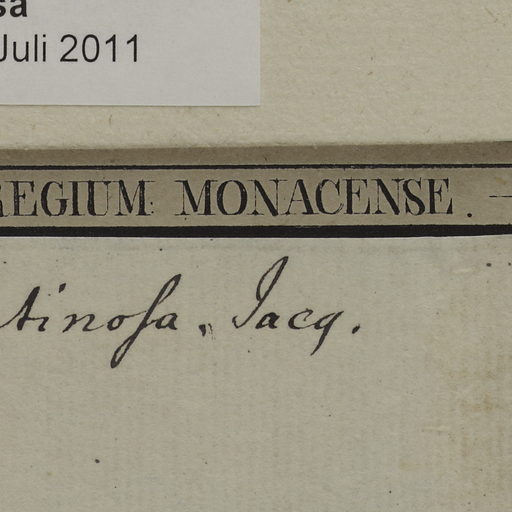 sa
Juli 2011
REGIUM MONACENSE.
tinosa. Jacq.